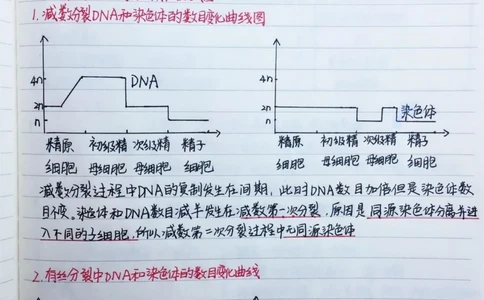 1.减数分裂DNA和染色体的数目变化曲线图
4n
DNA
2n
n
精原 初级精 次级精 精子
细胞 母细胞 母细胞 细胞
4n
2n
染色体
n
精原 初级精 次级精 精子
细胞 母细胞 母细胞 细胞
减数分裂过程中DNA的复制发生在间期，此时DNA数目加倍但是染色体数
目不变。染色体和DNA数目减半发生在减数第一次分裂，原因是同源染色体分离并进
入不同的子细胞，所以减数第二次分裂过程中无同源染色体
2.有丝分裂中DNA和染色体的数目变化曲线